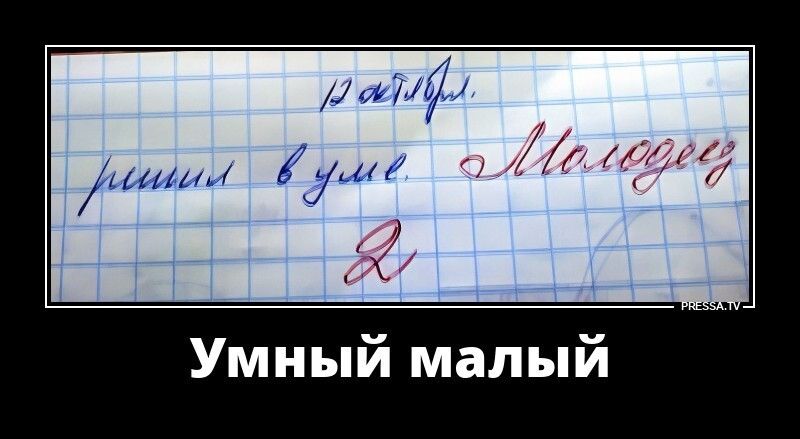 12 октября.
решил в уме. Молодец
2
PRESSA.TV
Умный малый